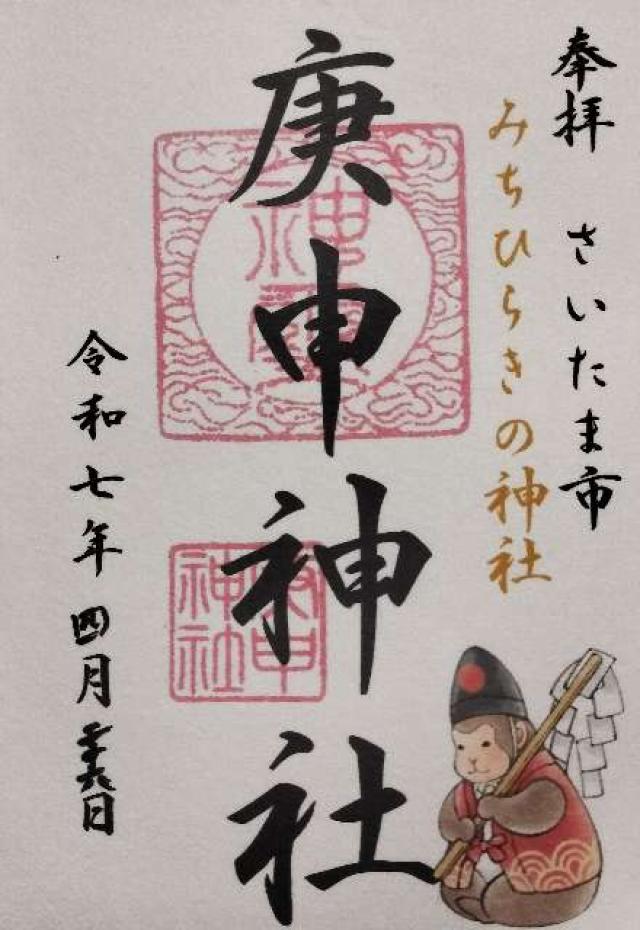 奉拝 さいたま市
みちひらきの神社
庚申神社
庚申
神社
令和七年四月二十六日